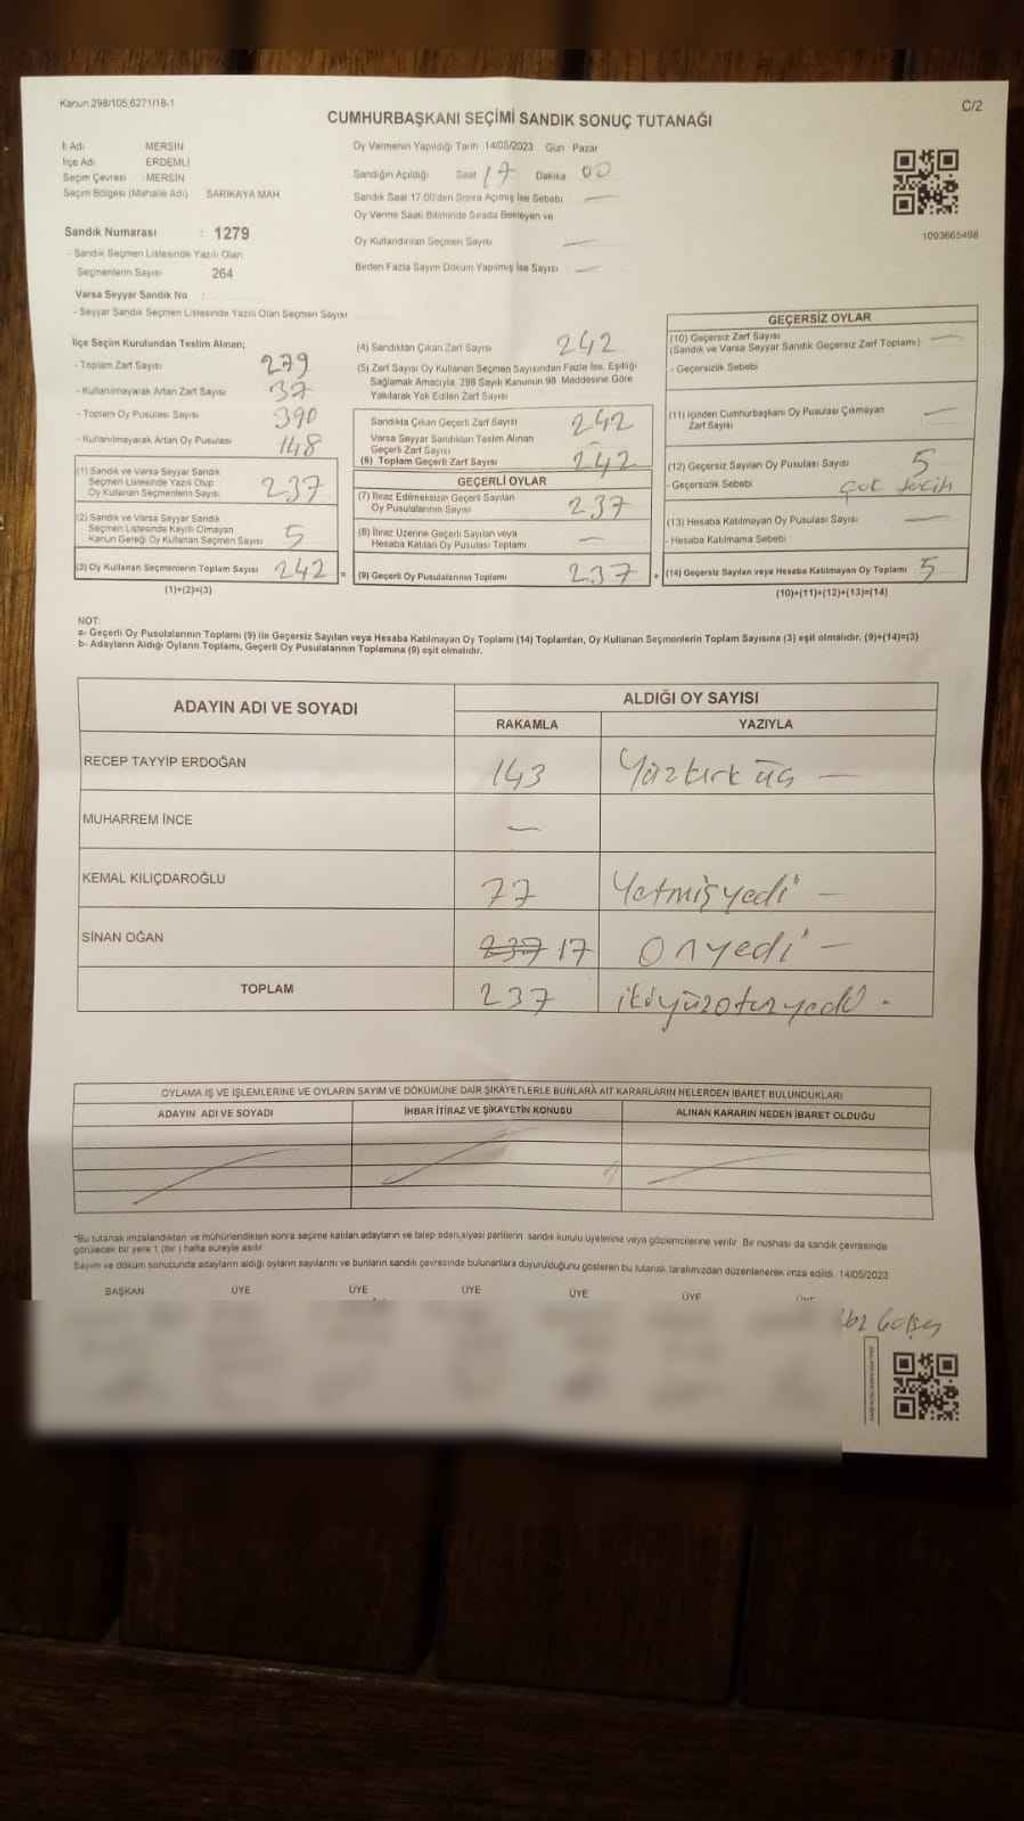 Kanun 298/105,6271/18-1
C/2
CUMHURBAŞKANI SEÇİMİ SANDIK SONUÇ TUTANAĞI
İl Adı MERSİN
İlçe Adı ERDEMLİ
Seçim Çevresi MERSİN
Seçim Bölgesi (Mahalle Adı) SARIKAYA MAH
Sandık Numarası : 1279
- Sandık Seçmen Listesinde Yazılı Olan
Seçmenlerin Sayısı 264
Varsa Seyyar Sandık No :
- Seyyar Sandık Seçmen Listesinde Yazılı Olan Seçmen Sayısı
Oy Vermenin Yapıldığı Tarih 14/05/2023 Gün Pazar
Sandığın Açıldığı Saat 17 Dakika 00
Sandık Saat 17.00'den Sonra Açılmış İse Sebebi —
Oy Verme Saati Bitiminde Sırada Bekleyen ve
Oy Kullandırılan Seçmen Sayısı —
Birden Fazla Sayım Döküm Yapılmış İse Sayısı —
1093665498
İlçe Seçim Kurulundan Teslim Alınan;
- Toplam Zarf Sayısı 279
- Kullanılmayarak Artan Zarf Sayısı 37
- Toplam Oy Pusulası Sayısı 390
- Kullanılmayarak Artan Oy Pusulası 148
(1) Sandık ve Varsa Seyyar Sandık
Seçmen Listesinde Yazılı Olup
Oy Kullanan Seçmenlerin Sayısı 237
(2) Sandık ve Varsa Seyyar Sandık
Seçmen Listesinde Kayıtlı Olmayan
Kanun Gereği Oy Kullanan Seçmen Sayısı 5
(3) Oy Kullanan Seçmenlerin Toplam Sayısı 242 =
(1)+(2)=(3)
(4) Sandıktan Çıkan Zarf Sayısı 242
(5) Zarf Sayısı Oy Kullanan Seçmen Sayısından Fazla İse, Eşitliği
Sağlamak Amacıyla, 298 Sayılı Kanunun 98. Maddesine Göre
Yakılarak Yok Edilen Zarf Sayısı
Sandıkta Çıkan Geçerli Zarf Sayısı 242
Varsa Seyyar Sandıktan Teslim Alınan
Geçerli Zarf Sayısı —
(6) Toplam Geçerli Zarf Sayısı 242
GEÇERLİ OYLAR
(7) İtiraz Edilmeksizin Geçerli Sayılan
Oy Pusulalarının Sayısı 237
(8) İtiraz Üzerine Geçerli Sayılan veya
Hesaba Katılan Oy Pusulası Toplamı —
(9) Geçerli Oy Pusulalarının Toplamı 237 +
GEÇERSİZ OYLAR
(10) Geçersiz Zarf Sayısı
(Sandık ve Varsa Seyyar Sandık Geçersiz Zarf Toplamı) —
- Geçersizlik Sebebi
(11) İçinden Cumhurbaşkanı Oy Pusulası Çıkmayan
Zarf Sayısı —
(12) Geçersiz Sayılan Oy Pusulası Sayısı 5
- Geçersizlik Sebebi çok tercih
(13) Hesaba Katılmayan Oy Pusulası Sayısı —
- Hesaba Katılmama Sebebi
(14) Geçersiz Sayılan veya Hesaba Katılmayan Oy Toplamı 5
(10)+(11)+(12)+(13)=(14)
NOT:
a- Geçerli Oy Pusulalarının Toplamı (9) ile Geçersiz Sayılan veya Hesaba Katılmayan Oy Toplamı (14) Toplamları, Oy Kullanan Seçmenlerin Toplam Sayısına (3) eşit olmalıdır. (9)+(14)=(3)
b- Adayların Aldığı Oyların Toplamı, Geçerli Oy Pusulalarının Toplamına (9) eşit olmalıdır.
ADAYIN ADI VE SOYADI ALDIĞI OY SAYISI
RAKAMLA YAZIYLA
RECEP TAYYİP ERDOĞAN 143 Yüzkırk üç —
MUHARREM İNCE —
KEMAL KILIÇDAROĞLU 77 Yetmişyedi —
SİNAN OĞAN 237 17 Onyedi —
TOPLAM 237 ikiyüzotuzyedi -
OYLAMA İŞ VE İŞLEMLERİNE VE OYLARIN SAYIM VE DÖKÜMÜNE DAİR ŞİKAYETLERLE BUNLARA AİT KARARLARIN NELERDEN İBARET BULUNDUKLARI
ADAYIN ADI VE SOYADI İHBAR İTİRAZ VE ŞİKAYETİN KONUSU ALINAN KARARIN NEDEN İBARET OLDUĞU
*Bu tutanak imzalandıktan ve mühürlendikten sonra seçime katılan adayların ve talep eden siyasi partilerin sandık kurulu üyelerine veya gözlemcilerine verilir. Bir nüshası da sandık çevresinde
görülecek bir yere 1 (bir) hafta süreyle asılır.
Sayım ve döküm sonucunda adayların aldığı oyların sayılarını ve bunların sandık çevresinde bulunanlara duyurulduğunu gösteren bu tutanak tarafımızdan düzenlenerek imza edildi. 14/05/2023
BAŞKAN ÜYE ÜYE ÜYE ÜYE ÜYE